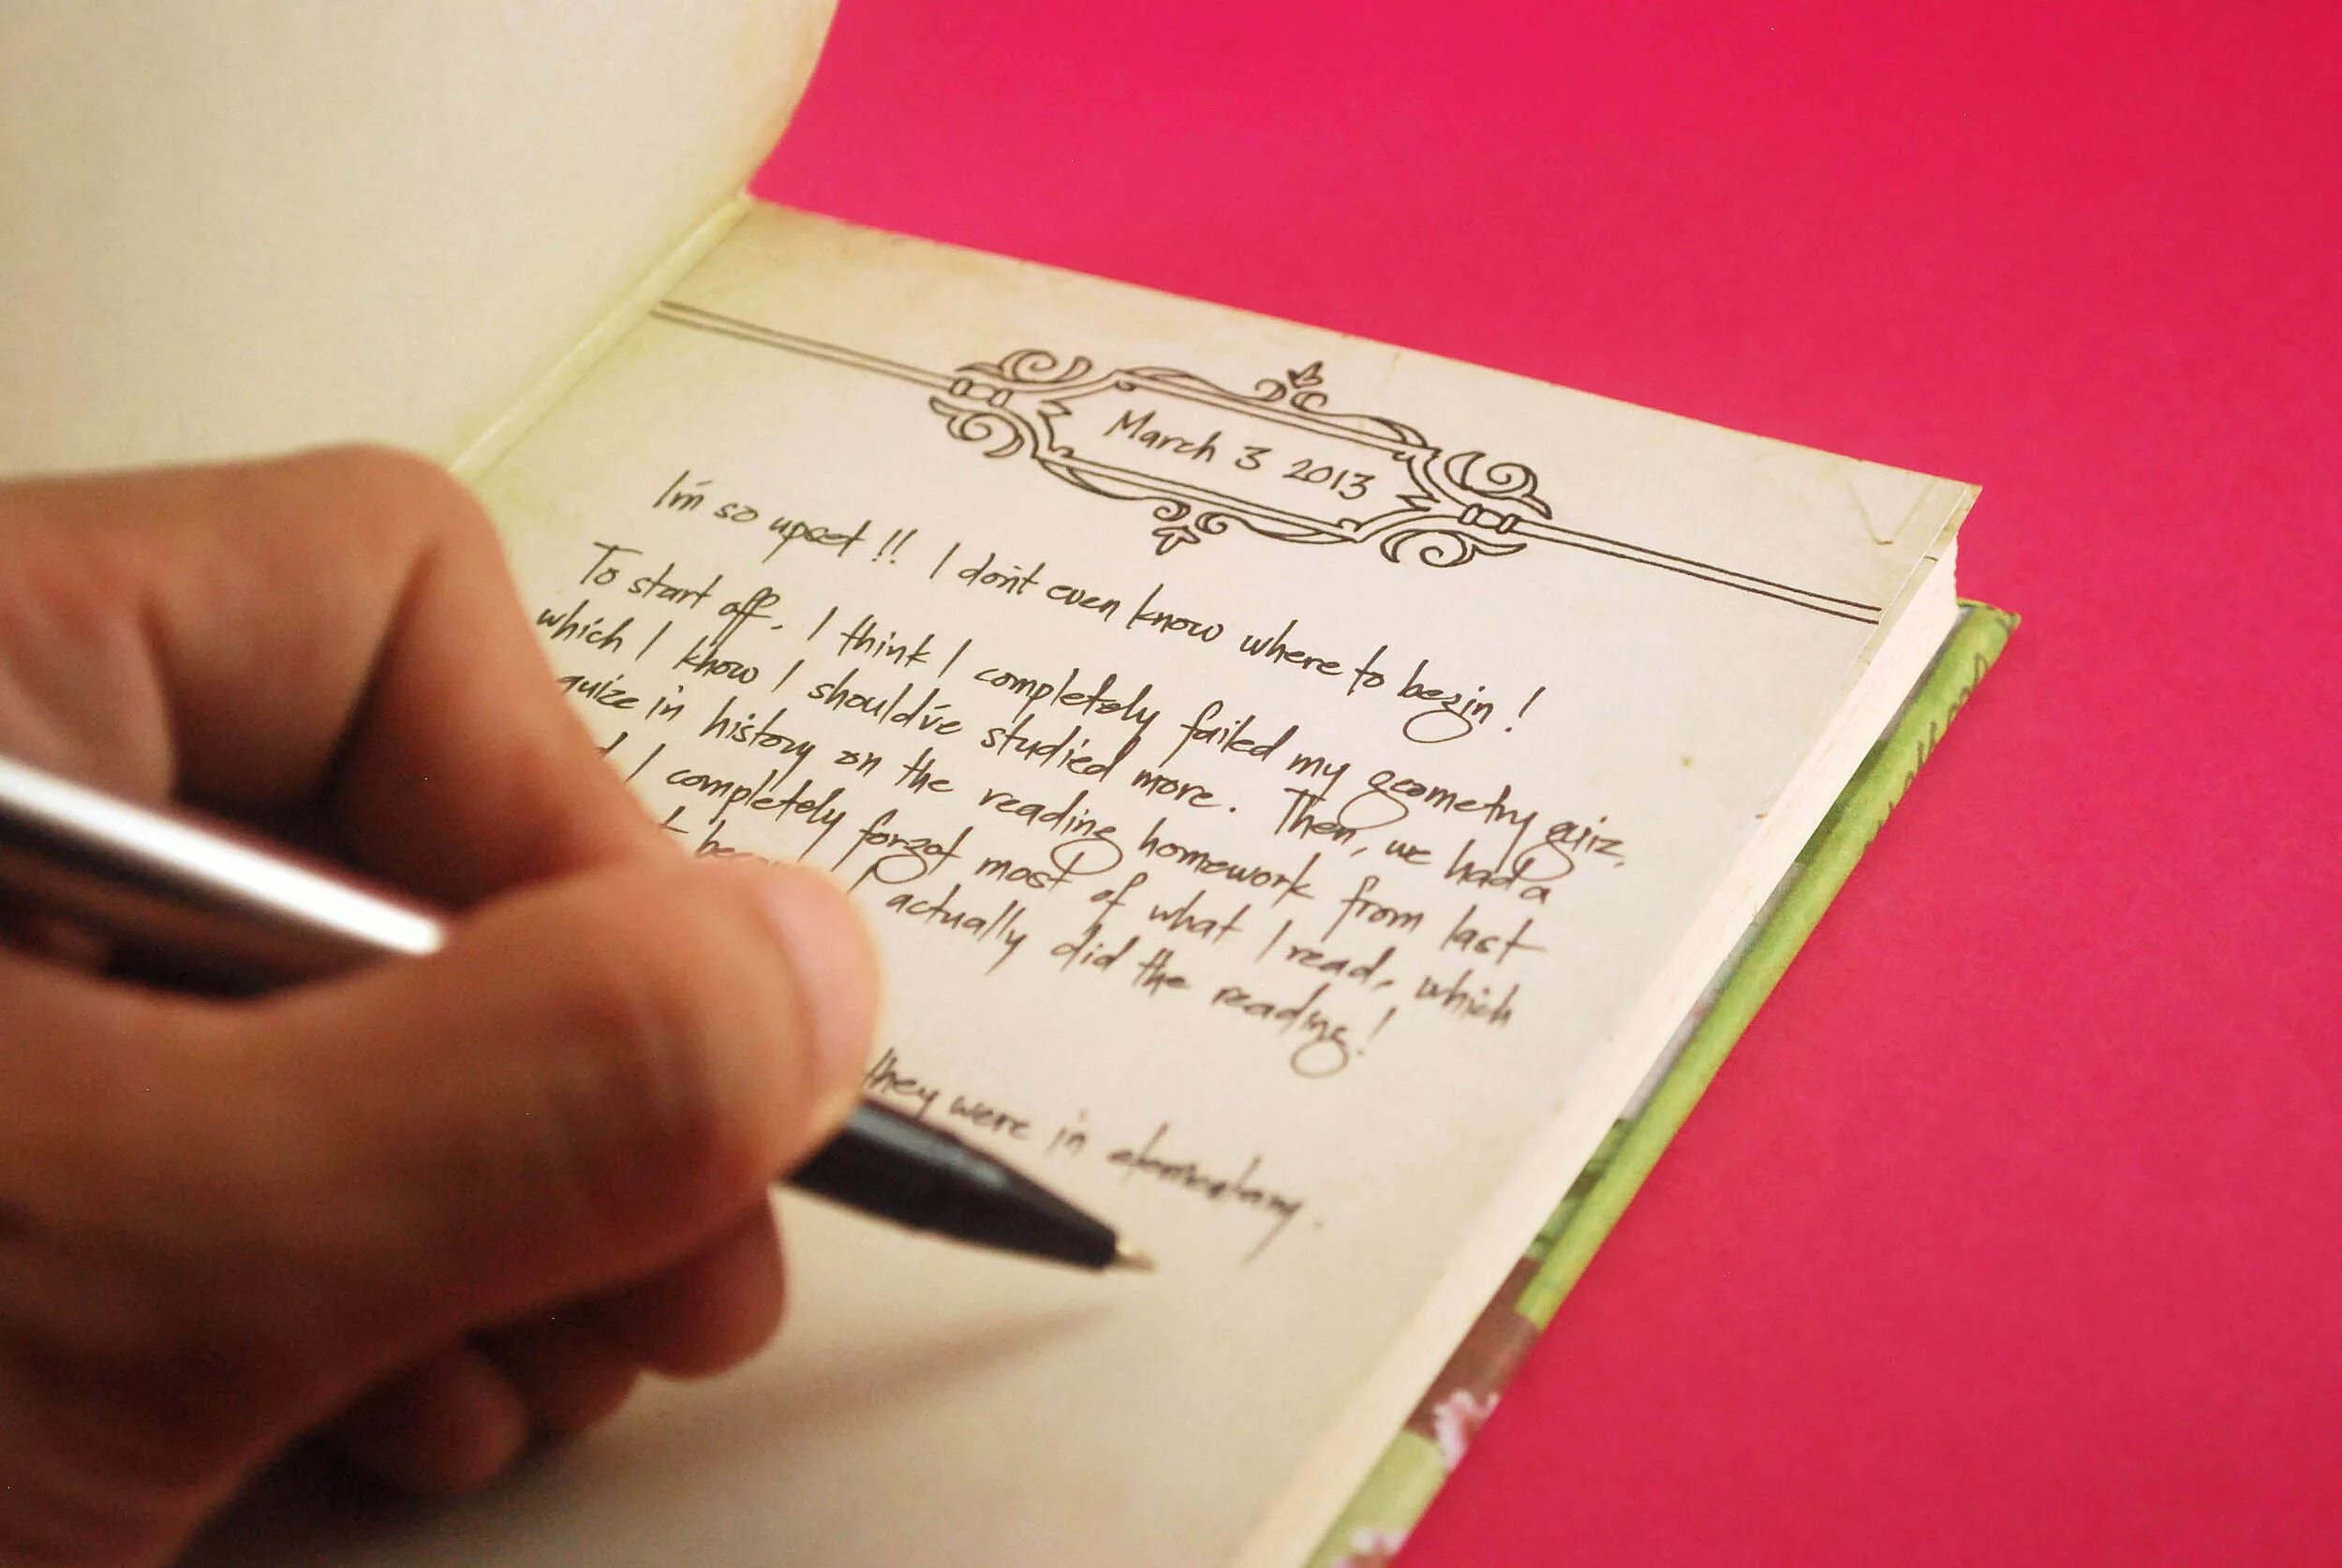 March 3 2013
I'm so upset !! I don't even know where to begin !
To start off, I think I completely failed my geometry quiz,
which I know I should've studied more. Then, we had a
quize in history on the reading homework from last
I completely forgot most of what I read, which
actually did the reading!
they were in elementary.